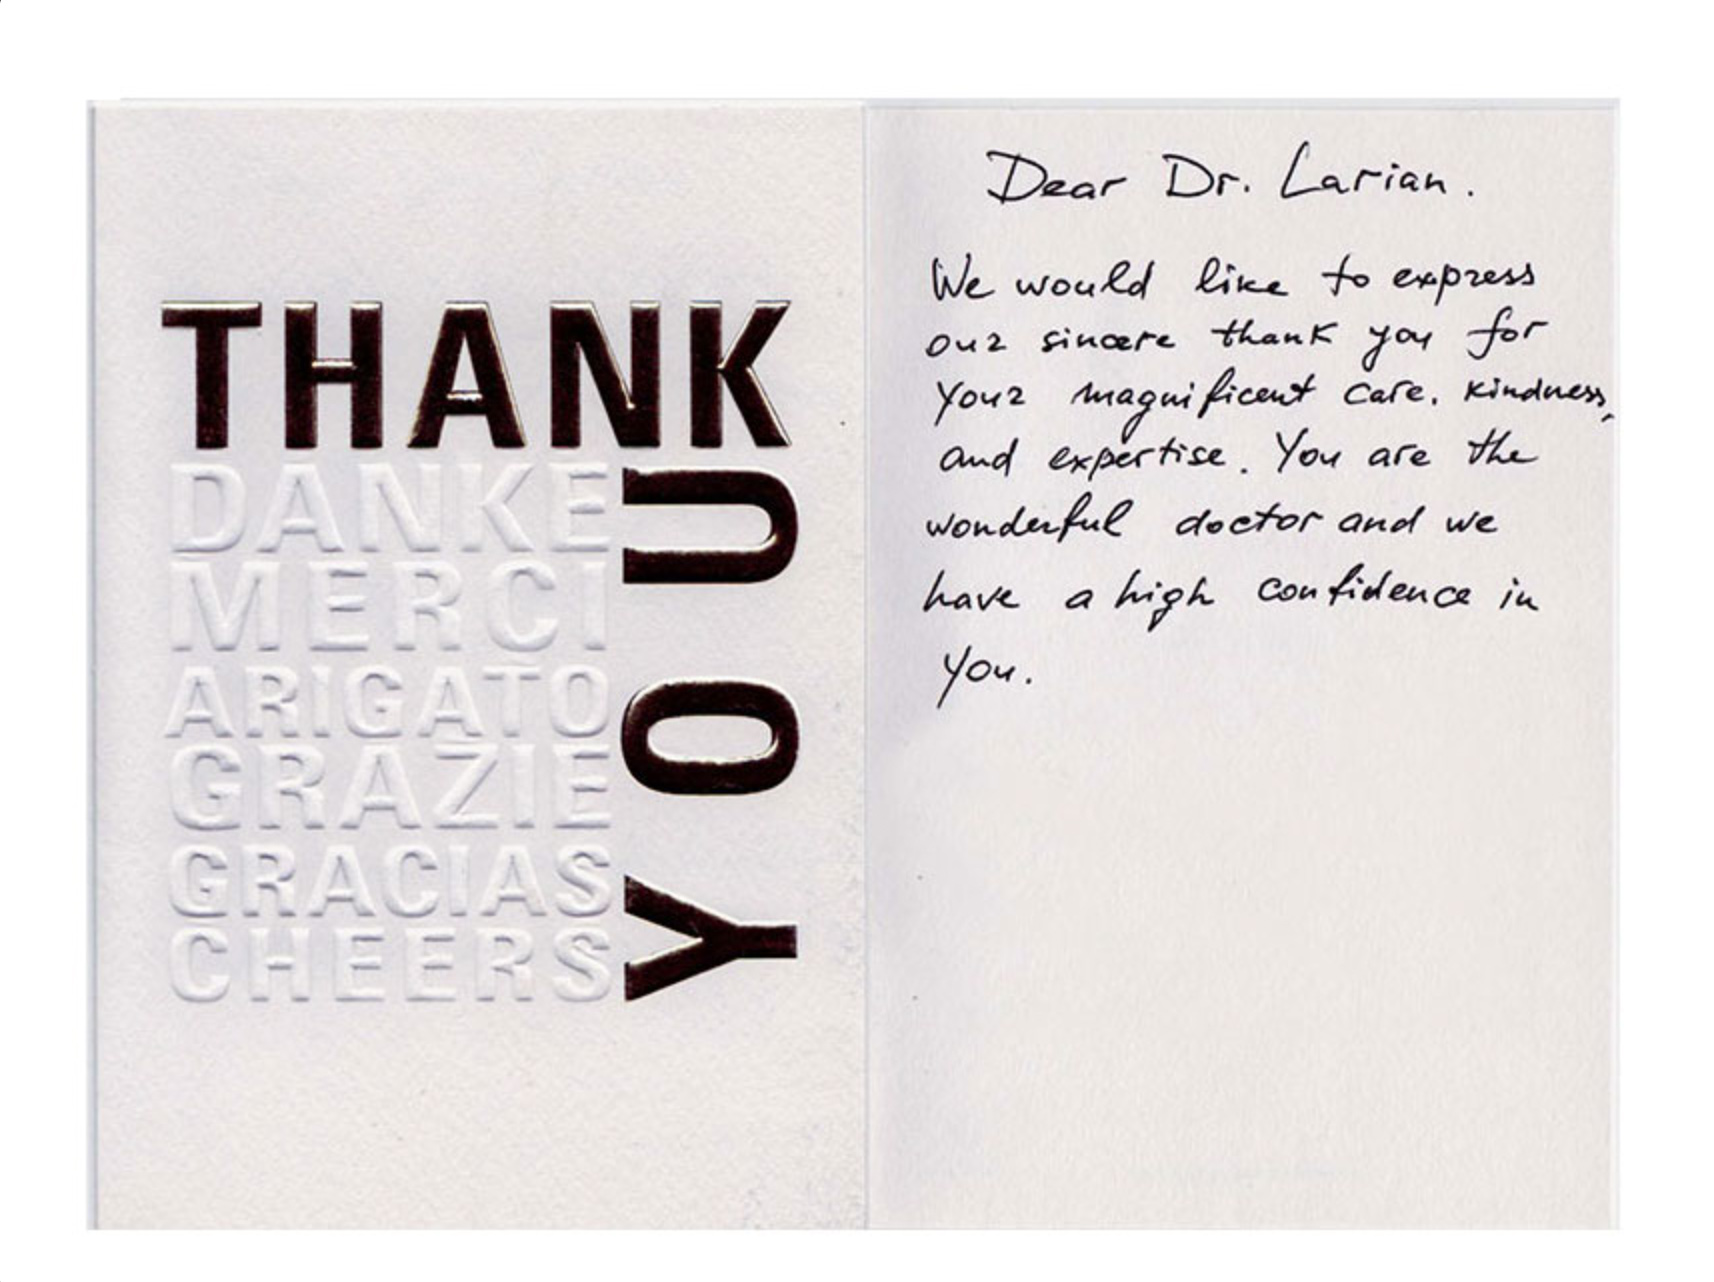 THANK
YOU
DANKE
MERCI
ARIGATO
GRAZIE
GRACIAS
CHEERS
Dear Dr. Larian.
We would like to express
our sincere thank you for
your magnificent care. kindness,
and expertise. You are the
wonderful doctor and we
have a high confidence in
you.